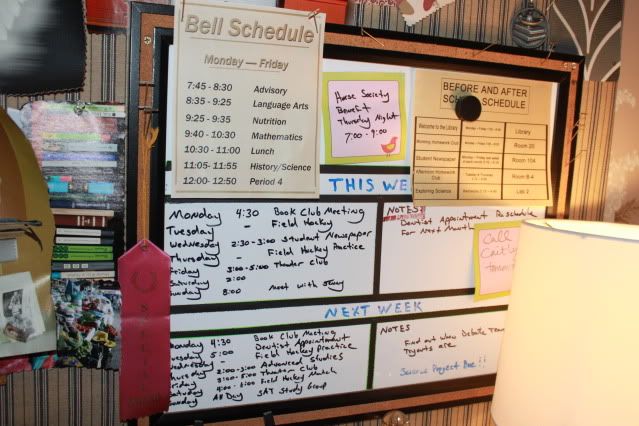 Bell Schedule
Monday — Friday
7:45 - 8:30 Advisory
8:35 - 9:25 Language Arts
9:25 - 9:35 Nutrition
9:40 - 10:30 Mathematics
10:30 - 11:00 Lunch
11:05 - 11:55 History/Science
12:00 - 12:50 Period 4
Horse Society
Benefit
Thursday Night
7:00 - 9:00
BEFORE AND AFTER
SCHEDULE
Welcome to the Library Library
Morning Homework Club Room 20
Student Newspaper Room 104
Afternoon Homework Club Room B-4
Exploring Science Lab 2
THIS WE
Monday 4:30 Book Club Meeting
Tuesday - Field Hockey
Wednesday 2:30 - 3:00 Student Newspaper
Thursday - Field Hockey Practice
Friday 3:00 - 5:00 Theater Club
Saturday 2:00
Sunday 8:00 Meet with
NOTES
Dentist Appointment Reschedule
For Next Month
Call
NEXT WEEK
Monday 4:30 Book Club Meeting
Tuesday 5:00 Dentist Appointment
Wednesday Field Hockey Practice
Thursday Advanced Studies
Friday Theater Club
Saturday Field Hockey Match
Sunday All Day SAT Study Group
NOTES
Find out when Debate Team
Tryouts are
Science Project Due!!